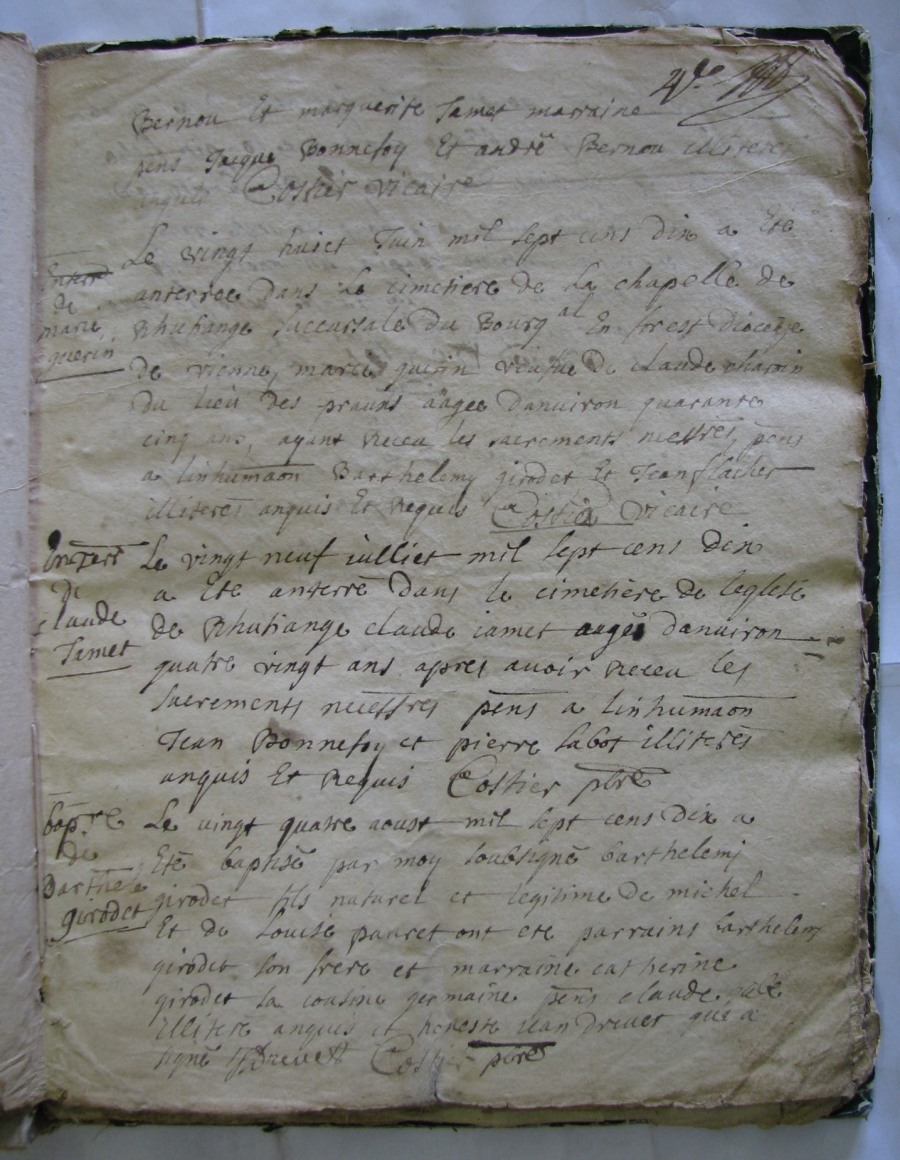 4e
Bernou Et marguerite Jamet marraine
pens Jacque Bonnefoy Et andrē Bernou illiteres
enquis Costier vicaire
Le vingt huict Juin mil sept cens dix a Ete
anterree dans le cimetiere de La chapelle de
Rhutiange succursale du Bourg al En forest diocēze
de vienne, marie guerin veufue de claude chapin
du lieu des prauns aagee danuiron quarante
cinq ans, ayant Receu les sacrements necessres, pens
a linhumaon Barthelemy girodet Et Jean flacher
illiteres anquis Et Requis Costier vicaire
Enterr
de
marie
guerin
Le vingt neuf iulliet mil sept cens dix
a Ete anterre dans le cimetiere de leglise
de Rhutiange claude iamet aagé danuiron
quatre vingt ans apres auoir Receu les
sacrements necessres pens a linhumaon
Jean Bonnefoy et pierre sabot illiteres
anquis Et Requis Costier pbre
Enterr
de
claude
Jamet
Le vingt quatre aoust mil sept cens dix a
Ete baptisē par moy soubsignē barthelemj
girodet fils naturel et legitime de michel
Et de Louise pauret ont ete parrains barthelemy
girodet son frere et marraine catherine
girodet sa cousine germaine pens claude
illiterē anquis et honeste Jean Drevet que a
signē JDrevett Costier pbre
bapre
de
Barthele
girodet